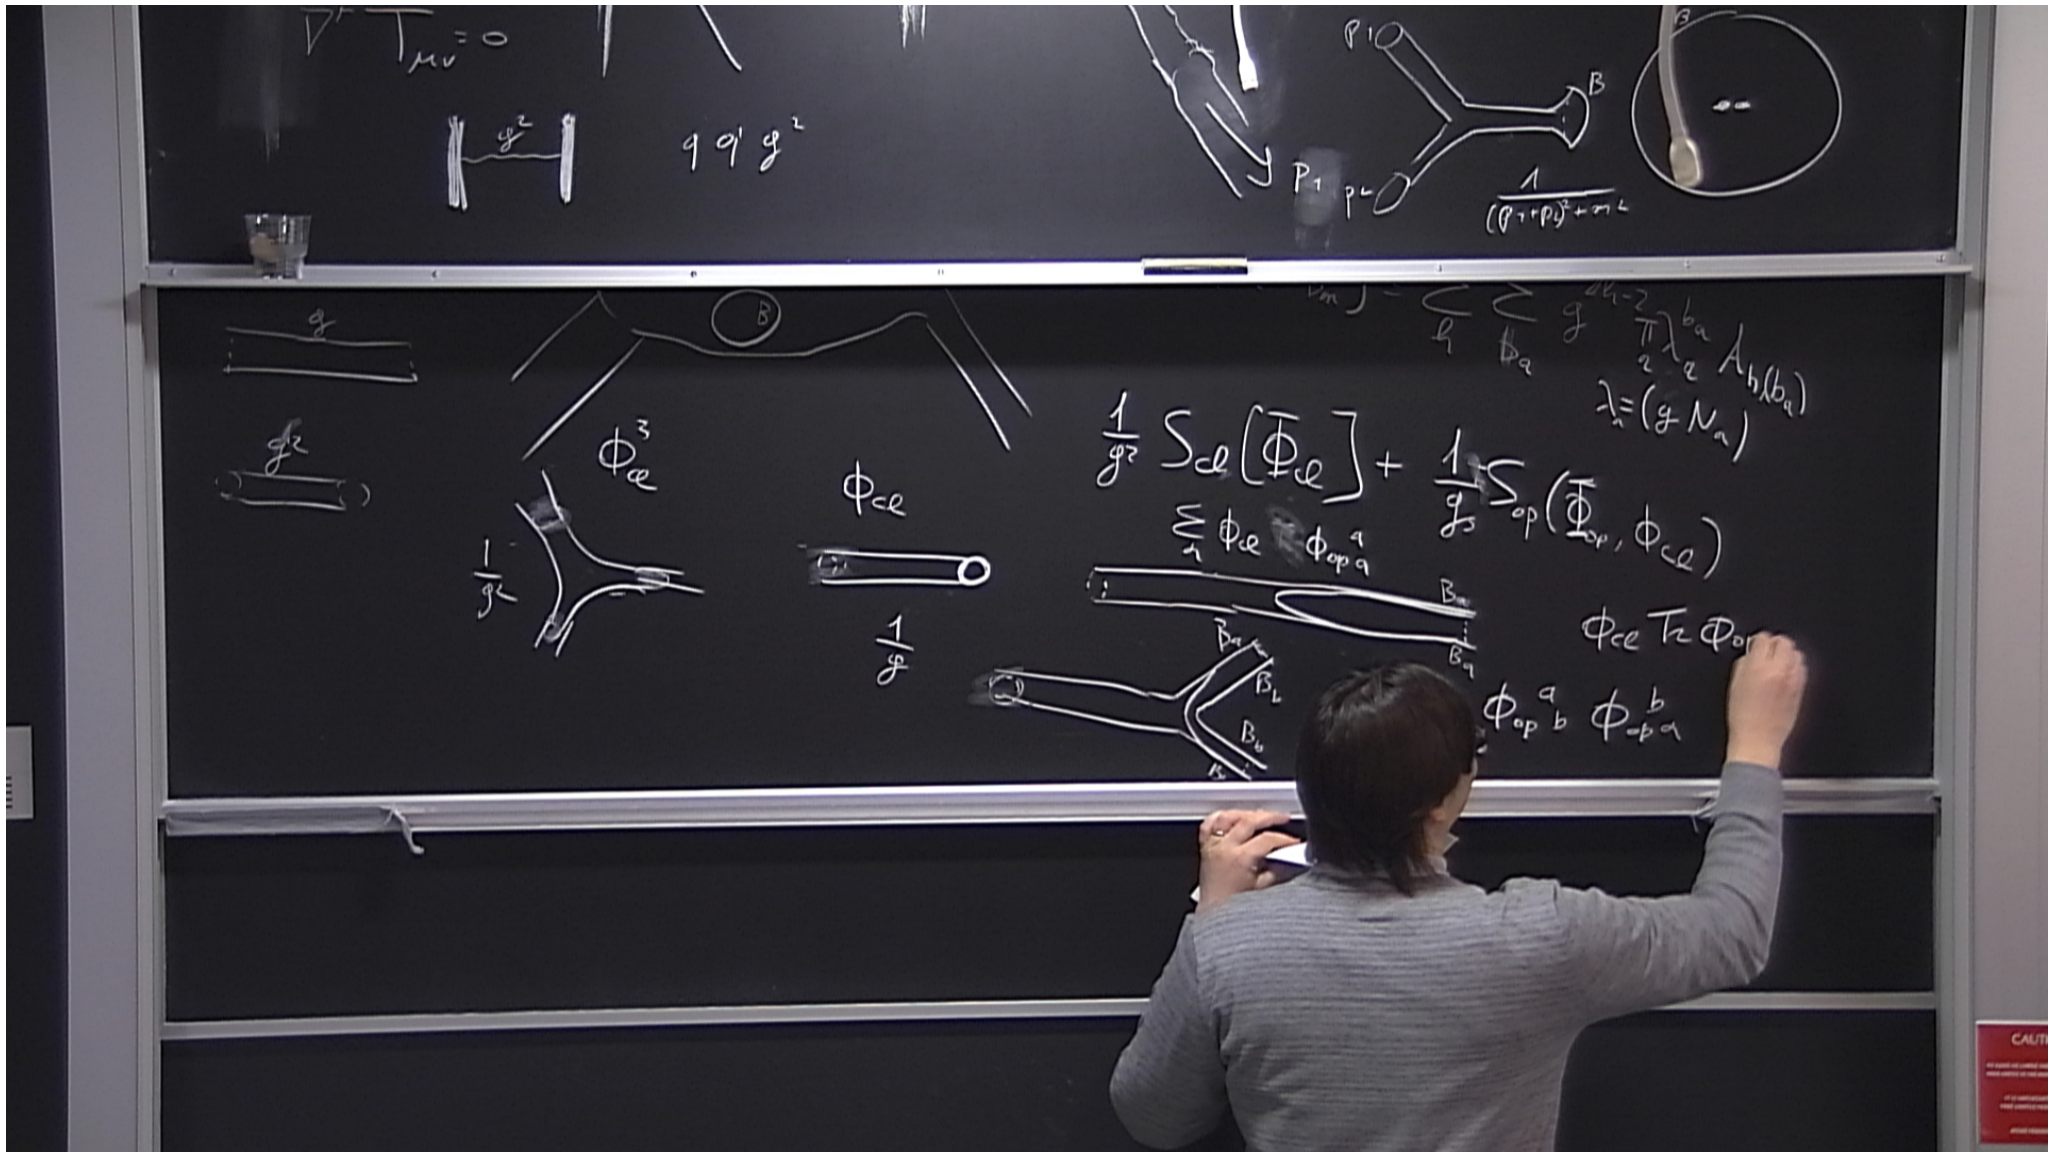 ∇^μ T_{μν} = 0
g²
q q' g²
P₁
P₁
P₂
B
1/((P₁+P₂)²+m²)
B
g
B
g²
Σ_h Σ_{b_a} g^{2h-2} π_a λ_a^{b_a} A_{h,(b_a)}
λ_a = (g N_a)
Φ³_{cl}
1/g²
ϕ_{cl}
1/g
1/g² S_{cl}[Φ_{cl}] + 1/g_s S_{op}(Φ_{op}, ϕ_{cl})
Σ_a ϕ_{cl} ϕ_{op}^a_a
B_a
B_a
ϕ_{cl} Tr ϕ_{op}
B_a
B_b
B_b
B
ϕ_{op}^a_b ϕ_{op}^b_a
CAUTI